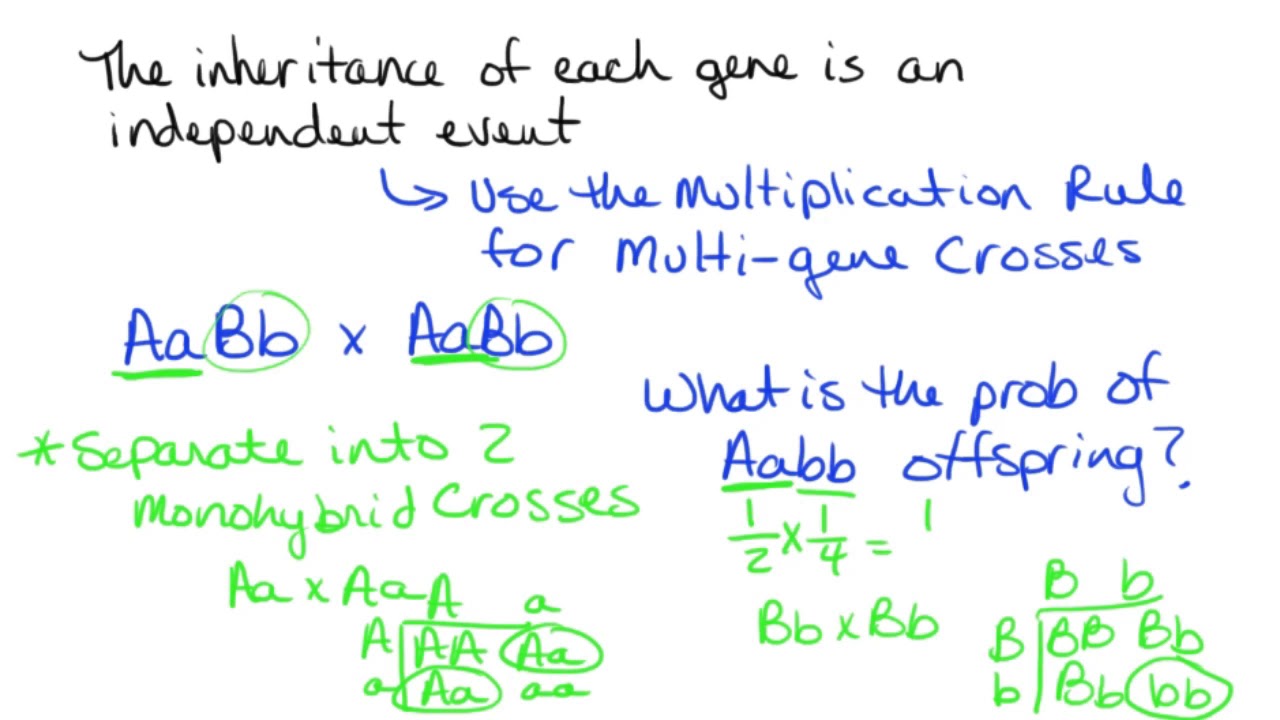 The inheritance of each gene is an
independent event
↳ Use the Multiplication Rule
for Multi-gene Crosses
AaBb x AaBb
What is the prob of
Aabb offspring?
1/2 x 1/4 = 1
*Separate into 2
Monohybrid Crosses
Aa x Aa
A a
A AA Aa
a Aa aa
Bb x Bb
B b
B BB Bb
b Bb bb